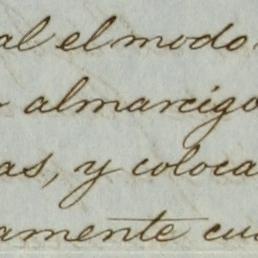 al el modo
almarcigo
as, y coloca
amente cu